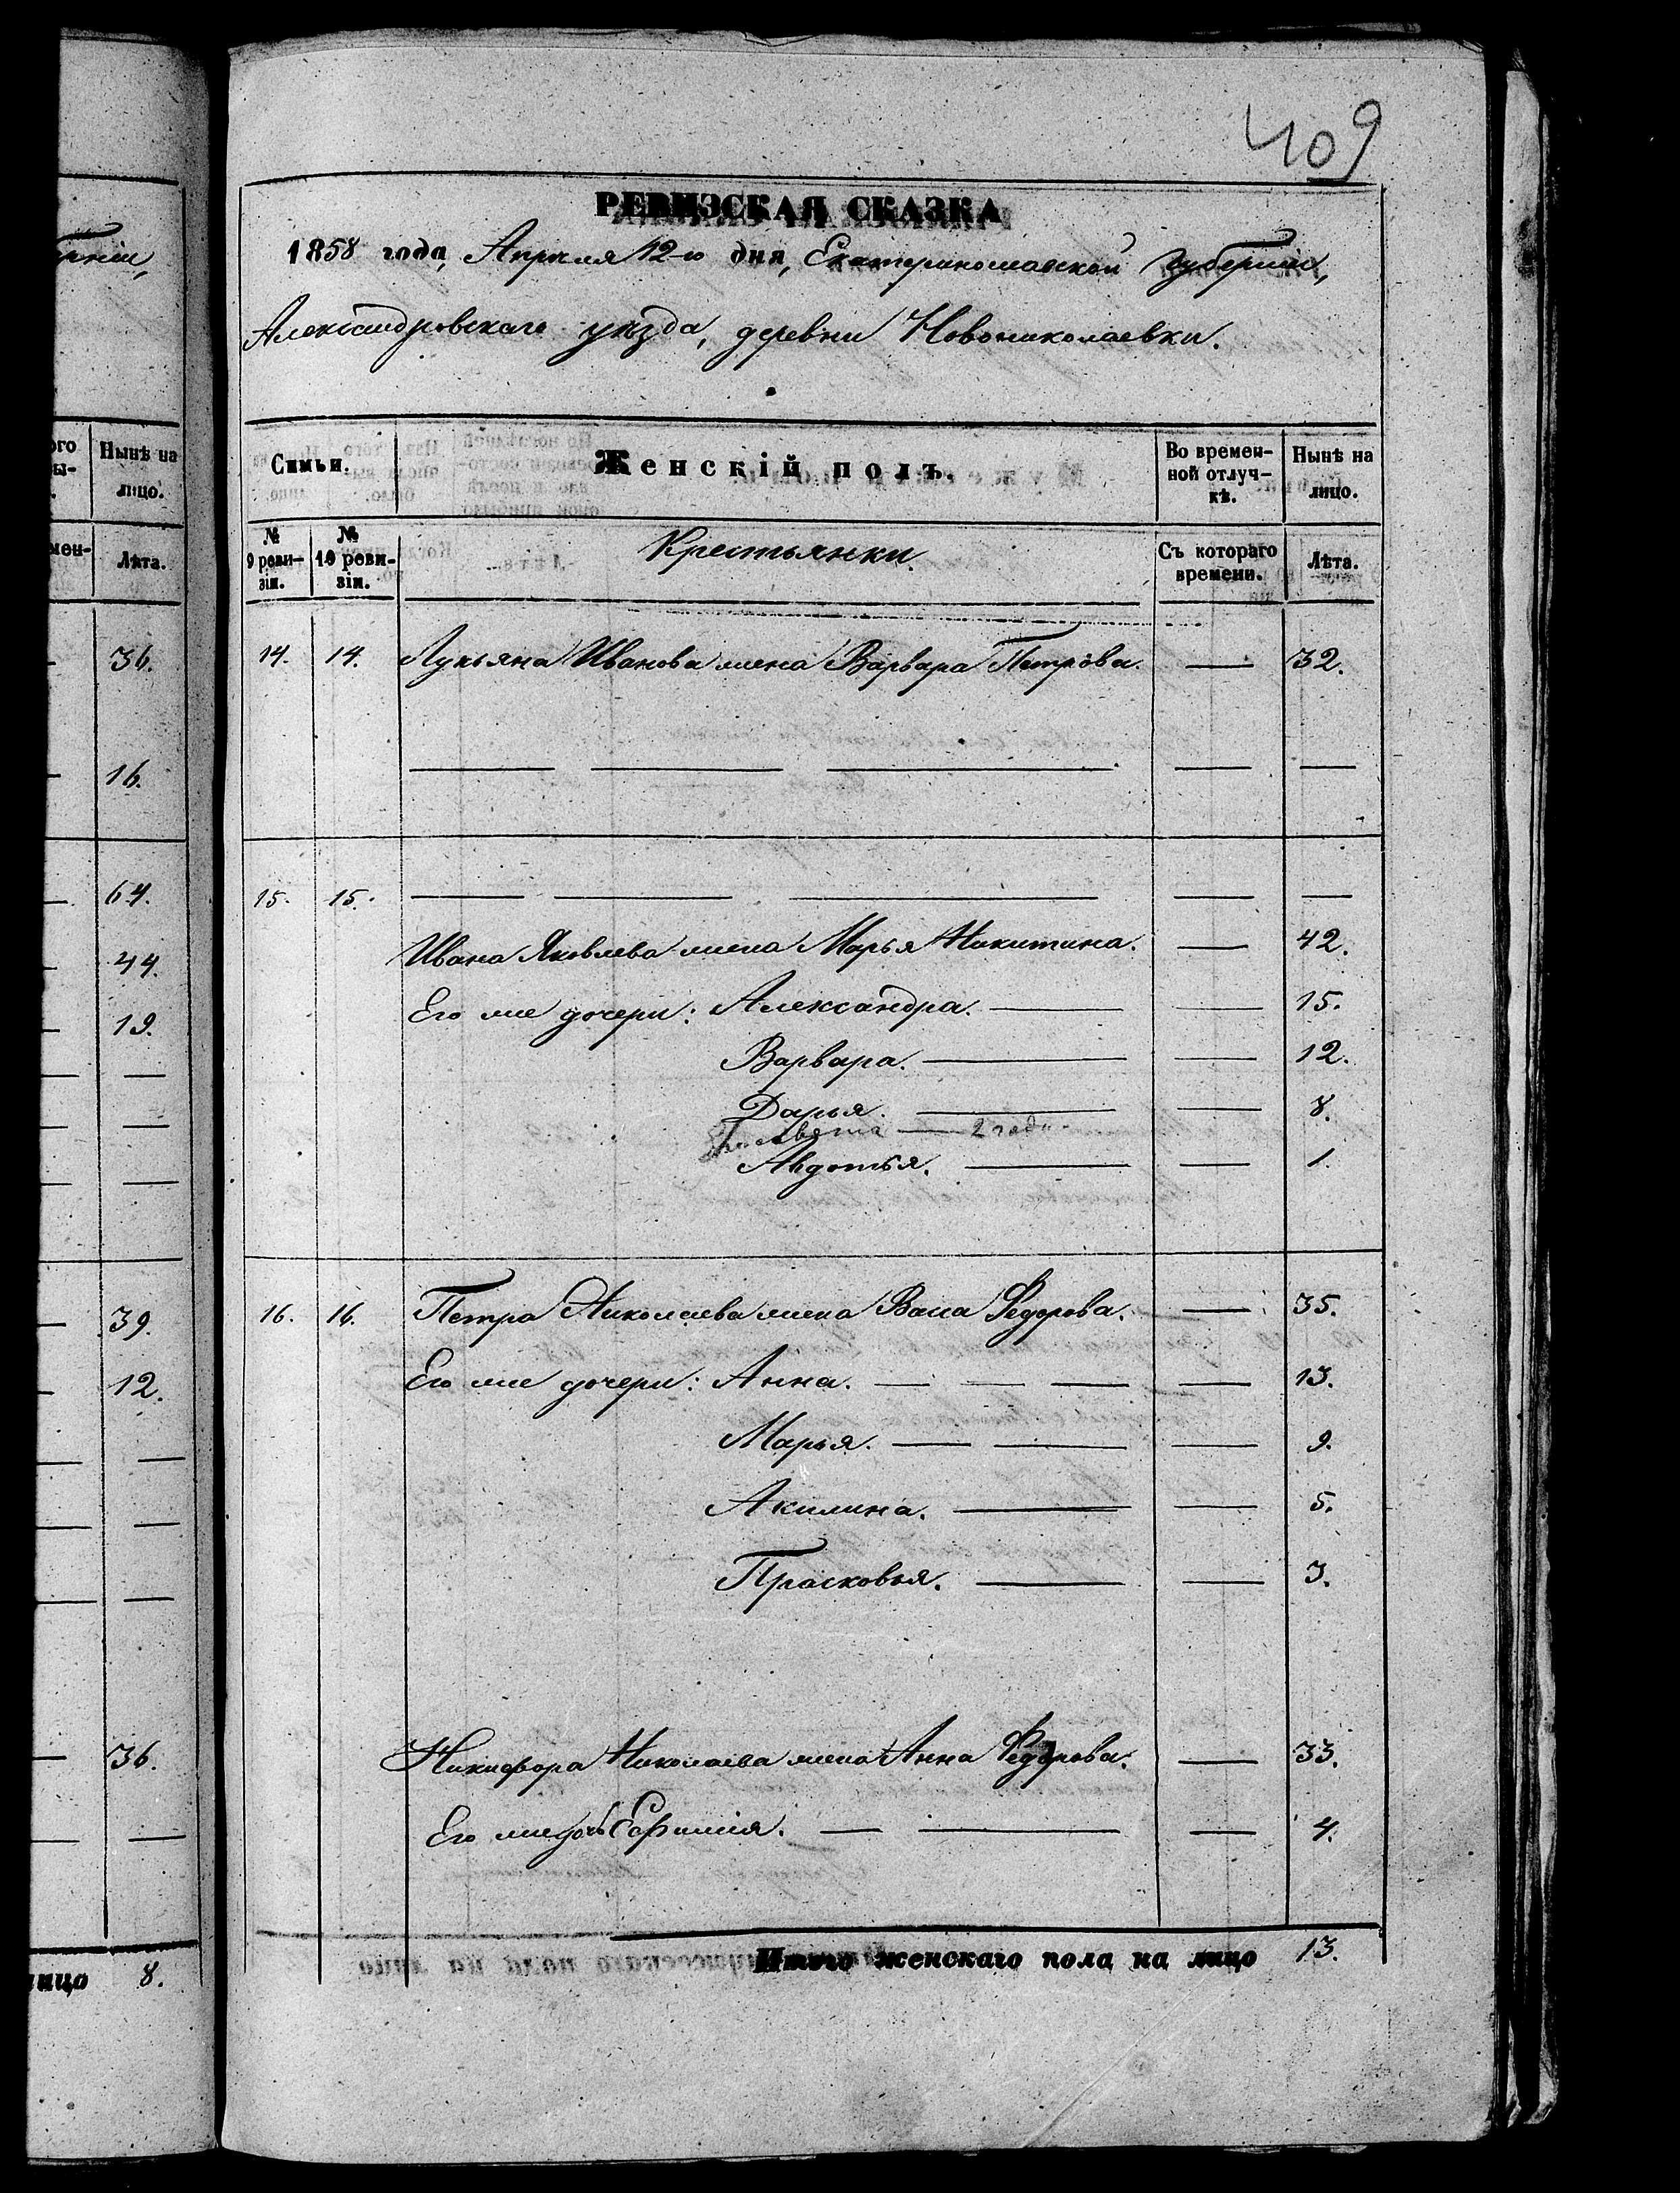 409
рніи,
ого
ы-
Нынѣ на
лицо.
мен-
Лѣта.
36.
16.
64.
44.
19.
39.
12.
36.
лицо 8.
РЕВИЗСКАЯ СКАЗКА
1858 года, Апреля 12-го дня, Екатеринославской Губерніи,
Александровскаго уѣзда, деревни Новониколаевки.
Семьи.
Женскій полъ.
Во времен-
ной отлуч-
кѣ.
Нынѣ на
лицо.
№
9 реви-
зіи.
№
10 реви-
зіи.
Крестьянки.
Съ котораго
времени.
Лѣта.
14. 14. Лукьяна Иванова жена Варвара Петрова. — 32.
15. 15.
Ивана Яковлева жена Марья Никитина. — 42.
Его же дочери: Александра. — 15.
Варвара. — 12.
Дарья. — 8.
— 2 года.
Авдотья. — 1.
16. 16. Петра Николаева жена Васа Федорова. — 35.
Его же дочери: Анна. — 13.
Марья. — 9.
Акилина. — 5.
Прасковья. — 3.
Никифора Николаева жена Анна Федорова. — 33.
Его же дочь Ефимія. — 4.
Итого женскаго пола на лицо 13.